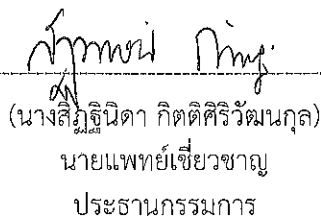 (นางสิฎฐินิดา กิตติศิริวัฒนกุล)
นายแพทย์เชี่ยวชาญ
ประธานกรรมการ